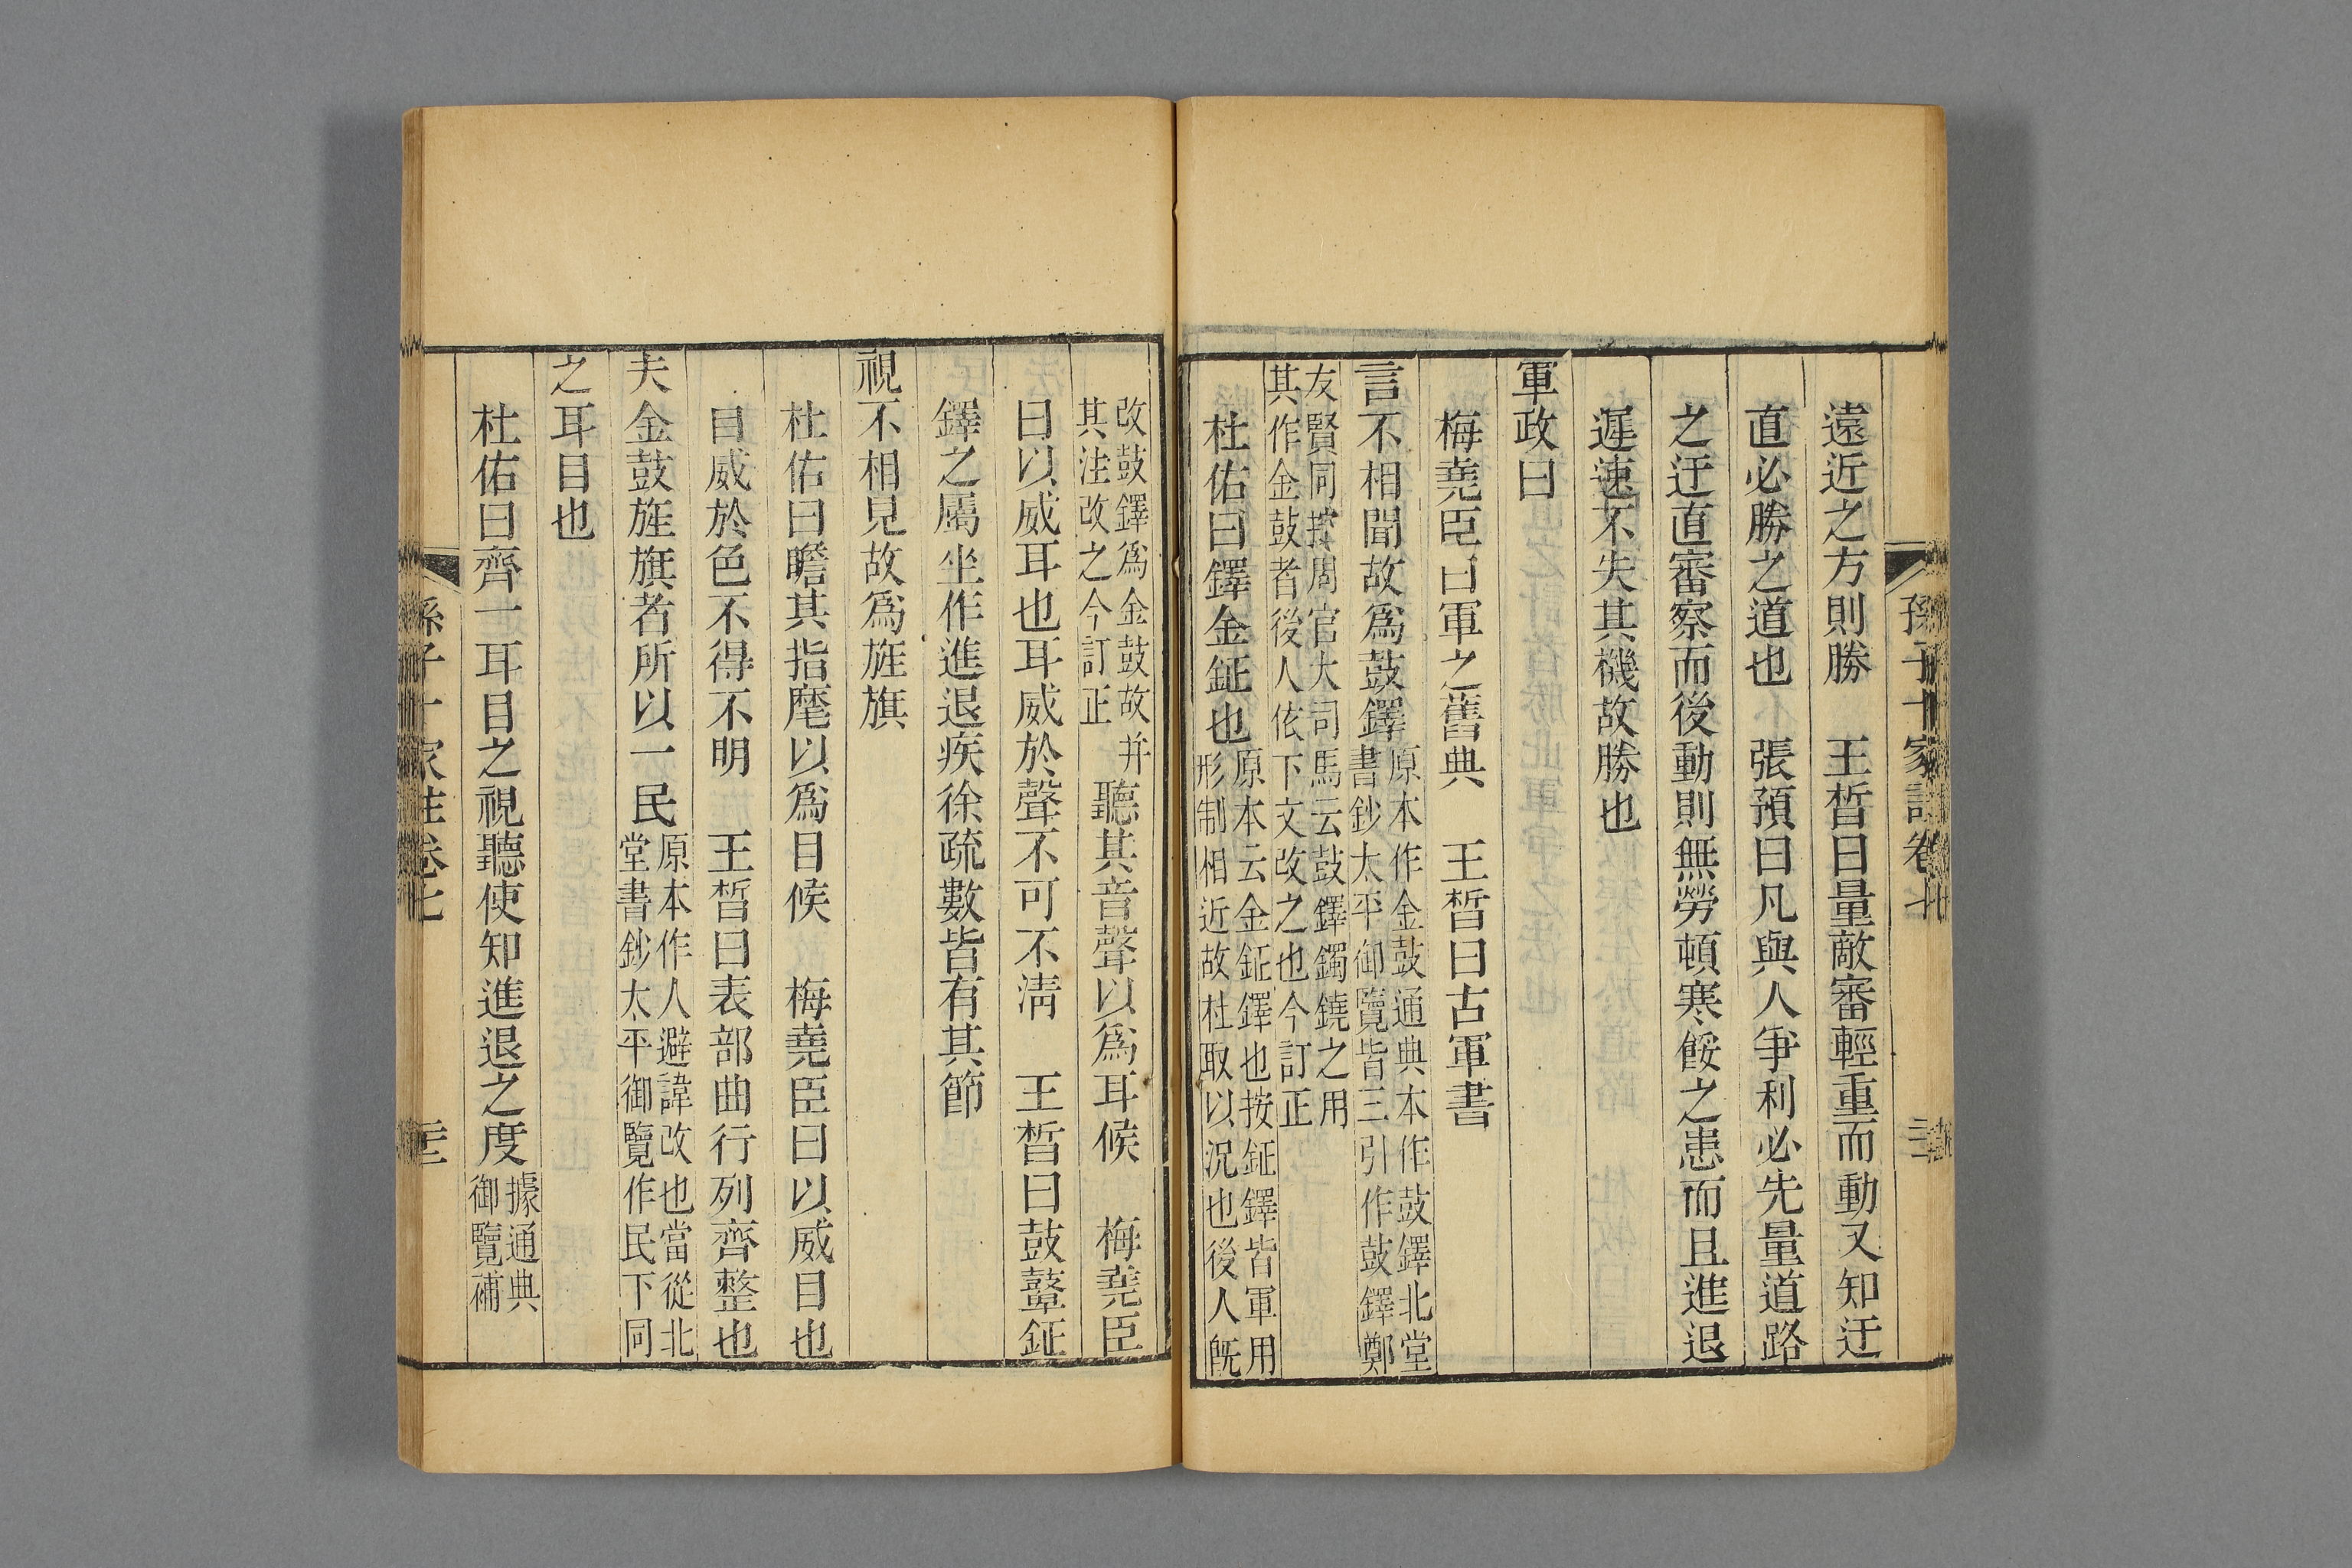 孫子十家註卷七
遠近之方則勝　王晳曰量敵審輕重而動又知迂
直必勝之道也　張預曰凡與人爭利必先量道路
之迂直審察而後動則無勞頓寒餒之患而且進退
遲速不失其機故勝也
軍政曰
梅堯臣曰軍之舊典　王晳曰古軍書
言不相聞故爲鼓鐸
原本作金鼓通典本作鼓鐸北堂
書鈔太平御覽皆三引作鼓鐸鄭
友賢同按周官大司馬云鼓鐸鐲鐃之用
其作金鼓者後人依下文改之也今訂正
杜佑曰鐸金鉦也
原本云金鉦鐸也按鉦鐸皆軍用
形制相近故杜取以況也後人旣
改鼓鐸爲金鼓故并
其注改之今訂正
聽其音聲以爲耳候　梅堯臣
曰以威耳也耳威於聲不可不淸　王晳曰鼓鼙鉦
鐸之屬坐作進退疾徐疏數皆有其節
視不相見故爲旌旗
杜佑曰瞻其指麾以爲目候　梅堯臣曰以威目也
目威於色不得不明　王晳曰表部曲行列齊整也
夫金鼓旌旗者所以一民
原本作人避諱改也當從北
堂書鈔太平御覽作民下同
之耳目也
杜佑曰齊一耳目之視聽使知進退之度
據通典
御覽補
孫子十家註卷七